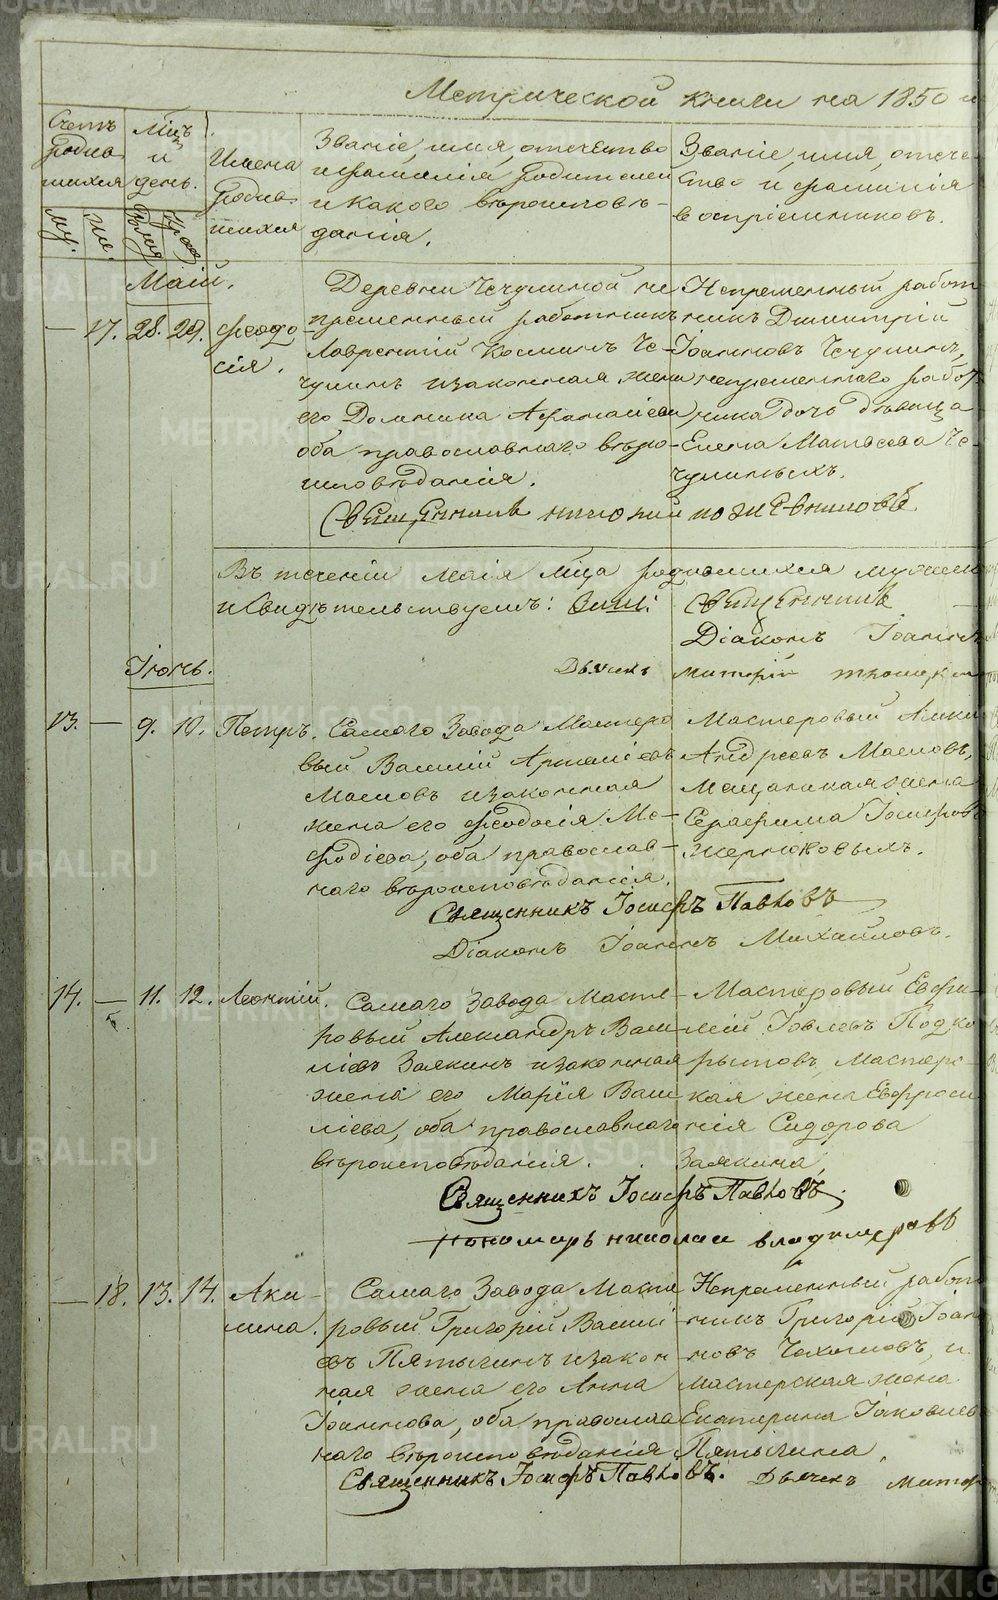 Метрической книги на 1850 й
Счетъ родив шихся
му. же.
Мцъ и день.
рожденія крещ
Имена родив шихся
Званіе, имя, отечество и фамилія родителей и какого вѣроисповѣ- данія.
Званіе, имя, отече- ство и фамилія воспріемниковъ.
Маій.
— 17. 28. 29. Феодо- сія.
Деревни Чечулиной не
премѣнный работникъ
Лаврентій Косминъ Че-
чулинъ и законная жена
его Домника Афанасіева,
оба православнаго вѣро-
исповѣданія.
Непремѣнный работ
никъ Димитрій
Іоанновъ Чечулинъ,
непремѣннаго работ
ника дочь дѣвица
Елена Матѳеева Че-
чулиныхъ.
Священникъ
Въ теченіи Маія мца родившихся мужеск
и Свидѣтельствуемъ: Священникъ
Діаконъ Іоаннъ
Дьячекъ Митрій
Іюнь.
13. — 9. 10. Петръ.
Самаго Завода Мастеро
вый Василій
Масловъ и законная
жена его Феодосія Ме-
фодіева, оба православ-
наго вѣроисповѣданія.
Мастеровый
Андреевъ Масловъ,
Мещанская жена
Серафима Іосифова
Жернаковыхъ.
Священникъ Іосифъ Павловъ
Діаконъ Іоаннъ Михайловъ.
14. — 11. 12. Леонтій.
Самаго Завода Масте-
ровый Александръ Васи-
ліевъ Заякинъ и законная
жена его Марія Васи-
ліева, оба православнаго
вѣроисповѣданія.
Мастеровый Евфи-
мій Іовлевъ Подко
рытовъ, Мастерс-
кая жена Евфроси-
нія Сидорова
Заякина,
Священникъ Іосифъ Павловъ.
Пономарь Николай Владимеровъ
— 18. 13. 14. Аки- лина.
Самаго Завода Масте
ровый Григорій Василі-
евъ Пятыгинъ и закон-
ная жена его Анна
Іоаннова, оба православ
наго вѣроисповѣданія
Непремѣнный работ
никъ Григорій Іоан
новъ Чахломовъ, и
мастерская жена
Екатерина Іаковлев
Пятыгина,
Священникъ Іосифъ Павловъ. Дьячекъ Митр
METRIKI.GASO-URAL.RU